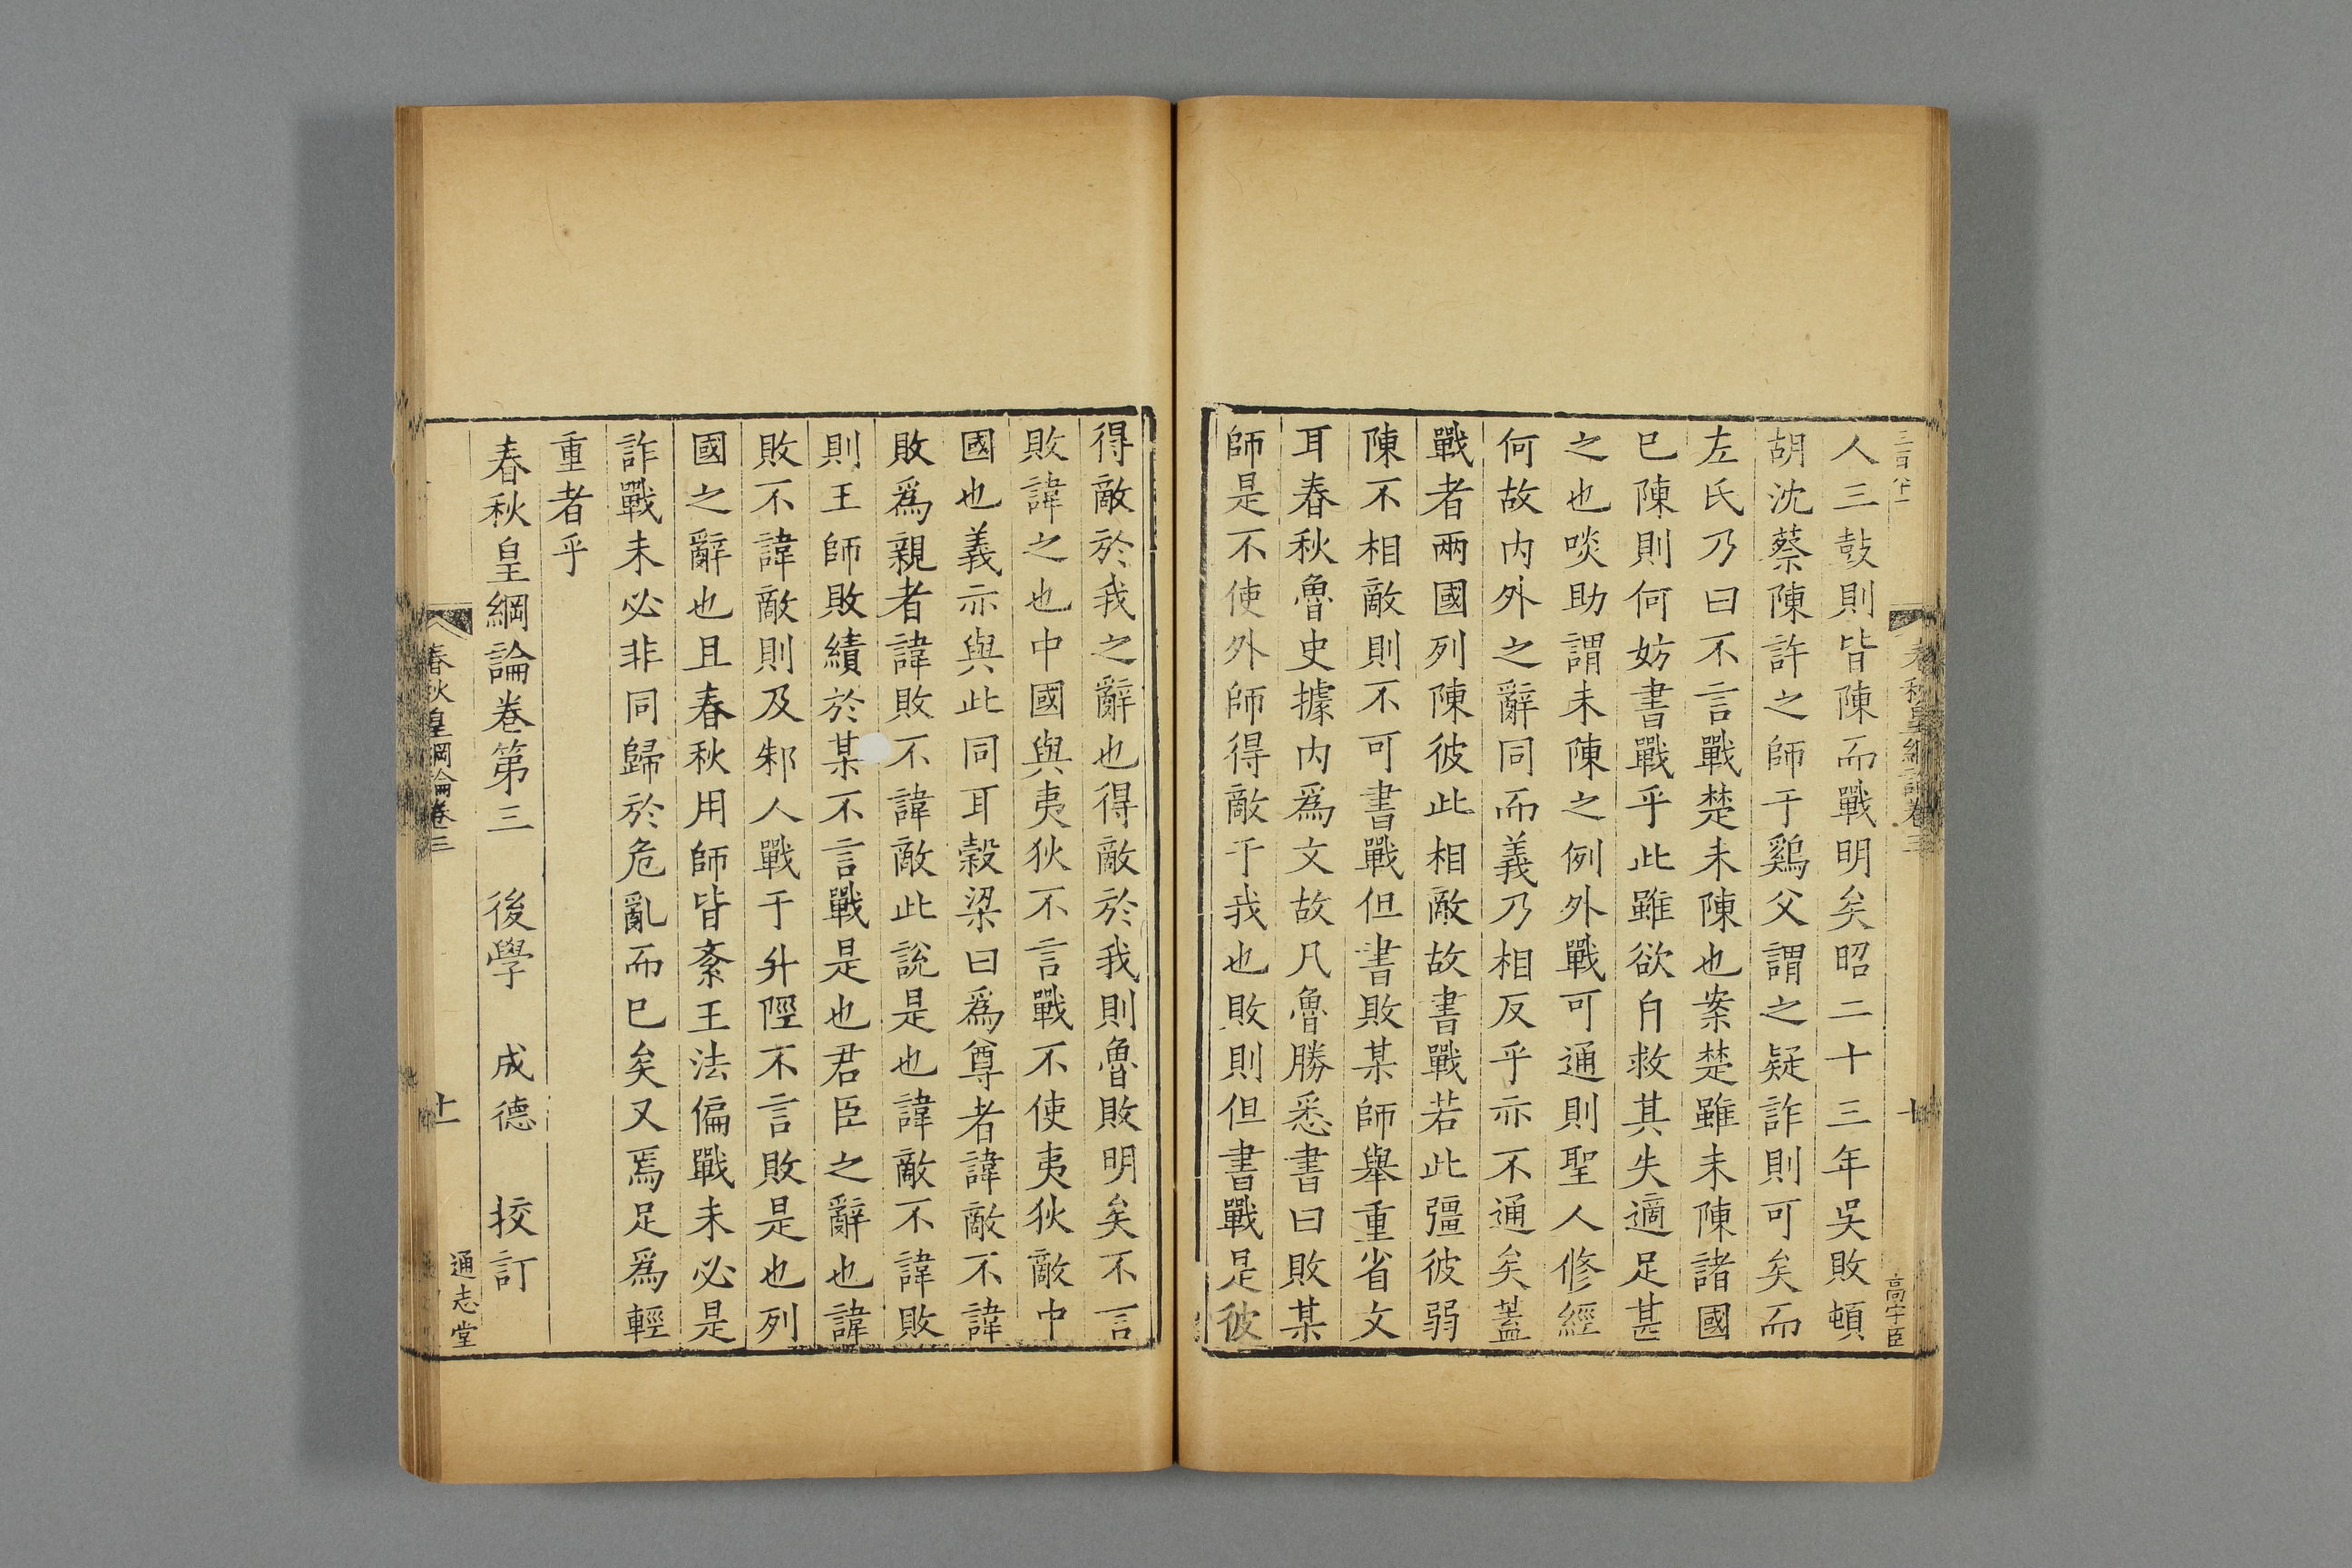 人三鼓則皆陳而戰明矣昭二十三年吳敗頓
胡沈蔡陳許之師于鷄父謂之疑詐則可矣而
左氏乃曰不言戰楚未陳也案楚雖未陳諸國
已陳則何妨書戰乎此雖欲自救其失適足甚
之也啖助謂未陳之例外戰可通則聖人修經
何故内外之辭同而義乃相反乎亦不通矣蓋
戰者兩國列陳彼此相敵故書戰若此彊彼弱
陳不相敵則不可書戰但書敗某師舉重省文
耳春秋魯史據内爲文故凡魯勝悉書曰敗某
師是不使外師得敵于我也敗則但書戰是彼
高宇臣
得敵於我之辭也得敵於我則魯敗明矣不言
敗諱之也中國與夷狄不言戰不使夷狄敵中
國也義亦與此同耳榖梁曰爲尊者諱敵不諱
敗爲親者諱敗不諱敵此說是也諱敵不諱敗
則王師敗績於某不言戰是也君臣之辭也諱
敗不諱敵則及邾人戰于升陘不言敗是也列
國之辭也且春秋用師皆紊王法偏戰未必是
詐戰未必非同歸於危亂而已矣又焉足爲輕
重者乎
春秋皇綱論卷第三 後學 成德 挍訂
春秋皇綱論卷三
十一
通志堂